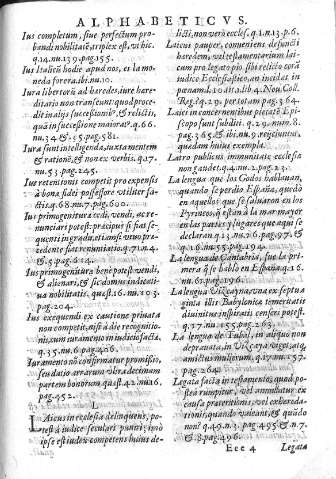 ALPHABETICVS.
Ius completum, siue perfectum pro-
bandi nobilitatē, triplex est, vt hic.
q.14.nu.139.pag.155.
Ius Italici hodie apud nos, ex la mo-
neda forera.ibi.nu.10.
Iura libertorū ad haredes, iure hare-
ditario non transeunt: quod proce-
dit in alijs successionib°, & relictis,
quā in successione maiorat°.q.66.
nu.34 & .35.pag.581.
Iura sunt intelligenda, iuxta mentem
& rationē, & non ex verbis.q.17.
nu.53.pag.245.
Ius retentionis competit pro expensis
à bona fidei possessore viliter fa-
ctis.q.68.nu.7.pag.600.
Ius primogenitura cedi, vendi, ac re-
nunciari potest: præcipuè si fiat se-
quenti in gradu
cedente
& 5.pag.614.
Ius primogenitura bene potest vendi,
& alienari, & sic domus indicati-
ua nobilitatis. quæst.16.nu.103.
pag.204.
Ius exequendi ex cautione priuata
non competit, nisi à die recognitio-
nis, cum iuramento in iudicio facta,
q.35.nu.6.pag.406.
Iuramento nō confirmatur promissio,
seu datio arrarum vltra decimam
partem bonorum.quæst.42.nu.16.
pag.452.
L
LAicus in ecclesia delinquens, po-
test à iudice seculari puniri, imò
ipse est iudex competens huius de-
licti, non verò eccles.q.1.n.13.p.6.
Laicus pauper, conueniens defuncti
haredem, vel testamentarium lai-
cum pro legato pio sibi relicto corā
iudice Ecclesiastico, an incidat in
pœnam l.10.tit.1.lib.4.Nou.Coll.
Reg.? q.29. per totam pag.364.
Laici in concernentibus peccatū Epi-
scopo sunt subditi.q.29.num.8.
pag.365.& ibi.nu.9.reijciuntur,
quædam huius exempla.
Latro publicus immunitate ecclesia
non gaudet.q.4.nu.2.pag.23.
La lengua que los Godos hablauan,
quando se perdio España, quedò
en aquellos que se saluaron en los
Pyrineos, q̃ estan à la mar mayor
en las partes y lugares que aqui se
declaran q.13.nu.26.pag.97.&
q.16.nu.55.pag.194.
La lengua de Cantabria, fue la pri-
mera q̃ se hablo en España.q.16.
nu.61.pag.196.
La lengua Vizcayna, vna ex septua-
ginta illis Babylonica temeratis
diuinitus inspiratis censeri potest.
q.17.nu.155.pag.263.
La lengua de Tubal, est aliquo non
deprauata, in Vizcaya vsq;, atq;
amictus mulierum.q.17.nu.157.
pag.264.
Legata facta in testamento, quod po-
steà rumpitur, vel annullatur ex
causa præteritionis, vel exhereda-
tionis, quando valeant, & quādo
non? q.49.n.3.pag.495 & n.7.
& 8.pag.496.
Eee 4 Legata